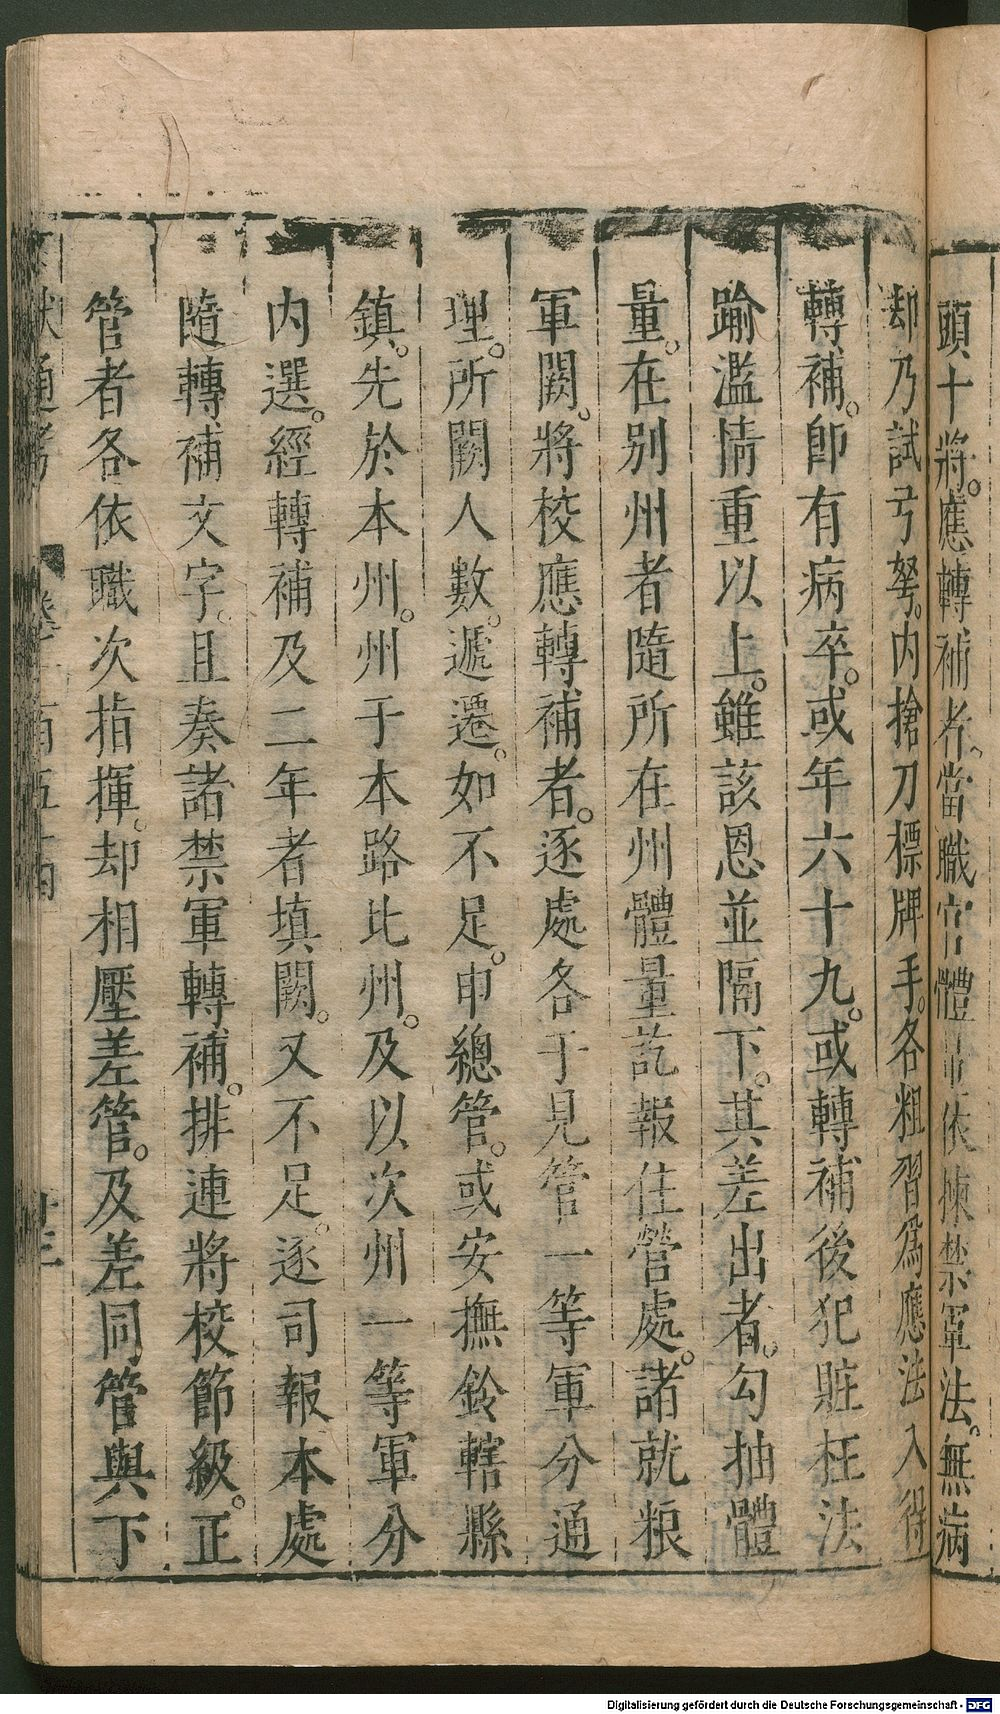 頭十將。應轉補者。當職官體量依揀禁軍法。無病
却乃試弓弩。内搶刀標牌手。各粗習爲應法入得
轉補。即有病卒。或年六十九。或轉補後犯贓枉法
踰濫情重以上。雖該恩並隔下。其差出者。勾抽體
量。在别州者隨所在州體量訖報住營處。諸就粮
軍闕。將校應轉補者。逐處各于見管一等軍分通
理。所闕人數。遞遷。如不足。申總管。或安撫鈐轄縣
鎮。先於本州。州于本路比州。及以次州一等軍分
内選。經轉補及二年者填闕。又不足。逐司報本處
隨轉補文字。且奏諸禁軍轉補。排連將校節級。正
管者各依職次指揮。却相壓差管。及差同管與下
獻通考 卷一百五十四 廿三
Digitalisierung gefördert durch die Deutsche Forschungsgemeinschaft - DFG